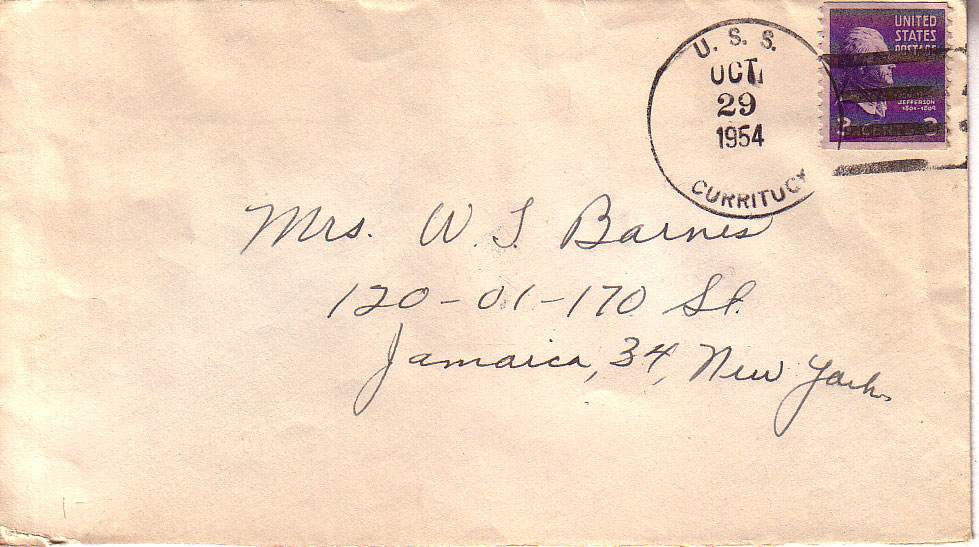 U. S. S.
OCT.
29
1954
CURRITUCK
UNITED
STATES
POSTAGE
JEFFERSON
1801-1809
3 3
Mrs. W. I. Barnes
120-01-170 St.
Jamaica, 34, New York.